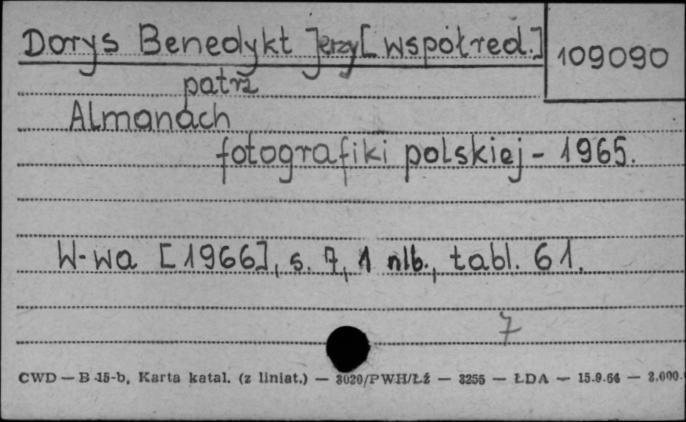 Dorys Benedykt Jerzy [współred.]
109090
patrz
Almanach
fotografiki polskiej - 1965.
W-wa [1966], s. 7, 1 nlb., tabl. 61.
7
CWD — B-15-b, Karta katal. (z liniat.) — 3020/PWH/Łź — 3255 — ŁDA — 15.9.64 — 2.000.